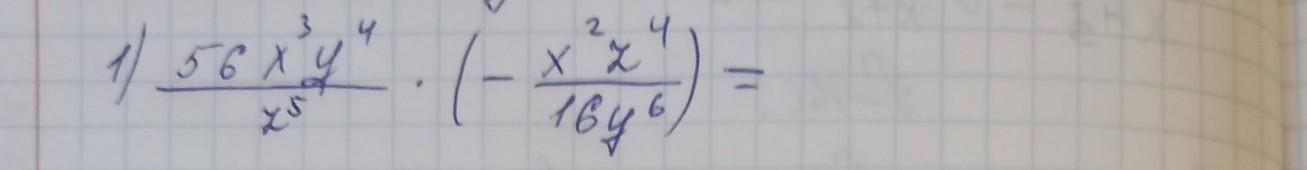 1) \frac{56x^3y^4}{z^5} \cdot \left(-\frac{x^2z^4}{16y^6}\right) =